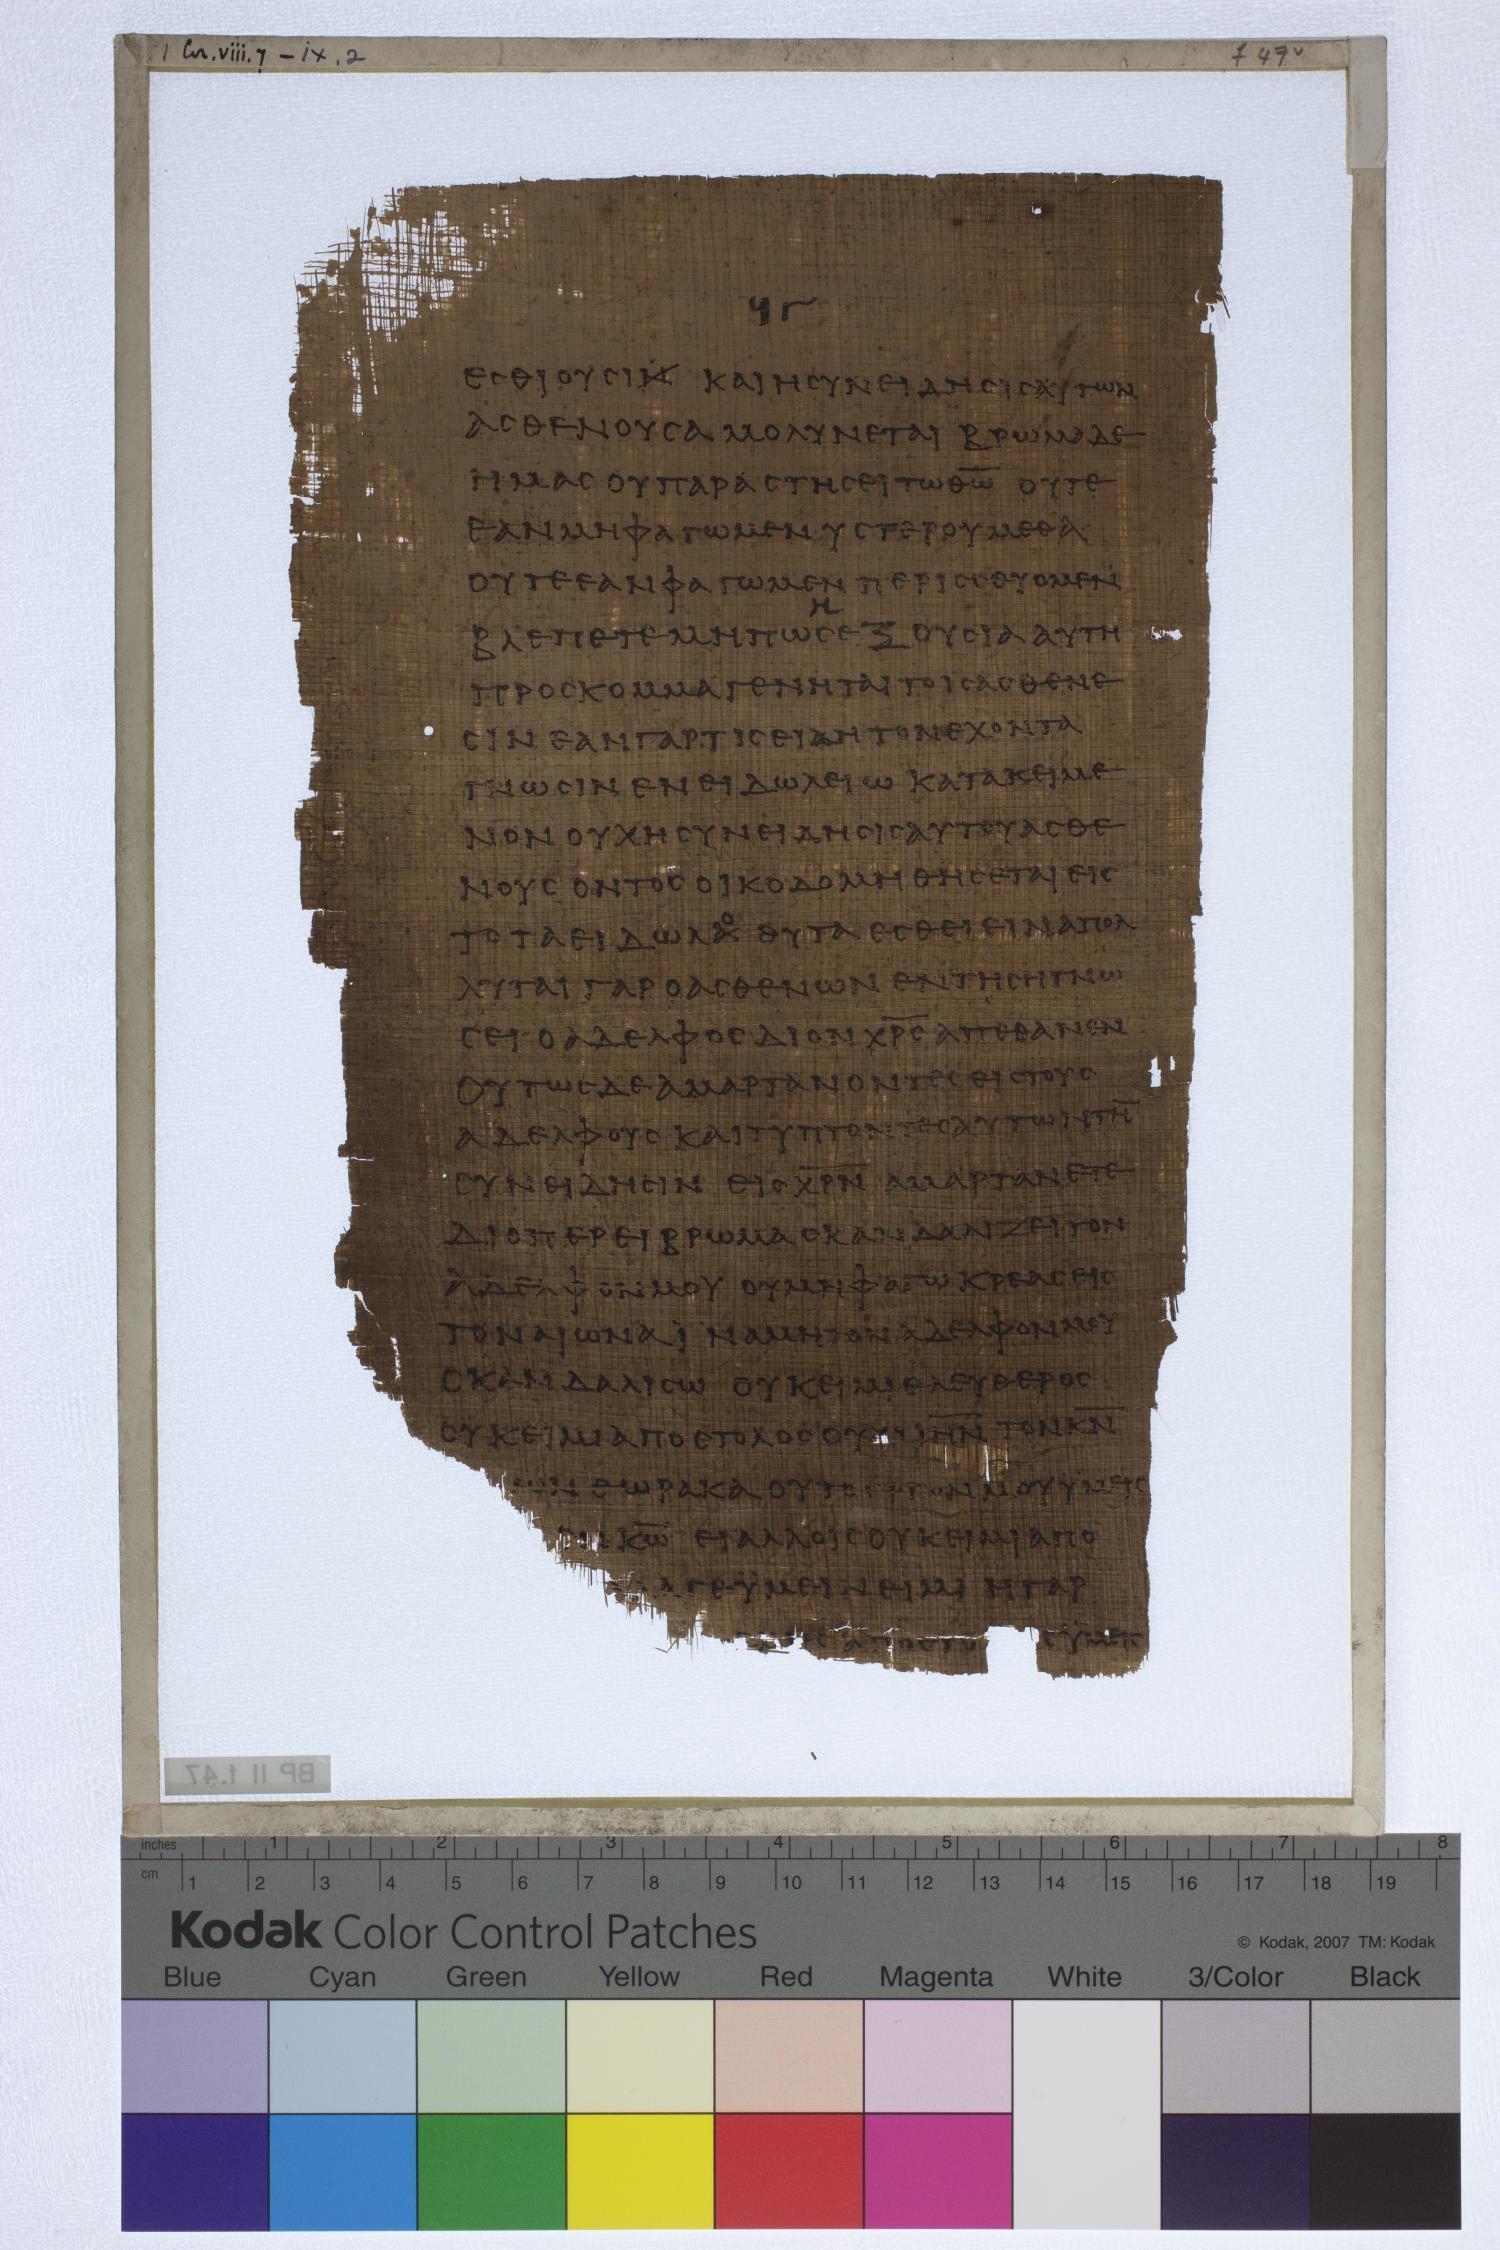 1 Cor. viii. 7 – ix. 2
f 47v
ϥΓ
ΕСΘΙΟΥСΙΝ ΚΑΙ Η СΥΝΕΙΔΗСΙС ΑΥΤΩΝ
ΑСΘΕΝΟΥСΑ ΜΟΛΥΝΕΤΑΙ ΒΡΩΜΑ ΔΕ
ΗΜΑС ΟΥ ΠΑΡΑСΤΗСΕΙ ΤΩ Θ̅Ω̅ ΟΥΤΕ
ΕΑΝ ΜΗ ΦΑΓΩΜΕΝ ΥСΤΕΡΟΥΜΕΘΑ
ΟΥΤΕ ΕΑΝ ΦΑΓΩΜΕΝ ΠΕΡΙССΕΥΟΜΕΝ
ΒΛΕΠΕΤΕ ΜΗ ΠΩС Η ΕΞΟΥСΙΑ ΑΥΤΗ
ΠΡΟСΚΟΜΜΑ ΓΕΝΗΤΑΙ ΤΟΙС ΑСΘΕΝΕ
СΙΝ ΕΑΝ ΓΑΡ ΤΙС ΕΙΔΗ ΤΟΝ ΕΧΟΝΤΑ
ΓΝΩСΙΝ ΕΝ ΕΙΔΩΛΕΙΩ ΚΑΤΑΚΕΙΜΕ
ΝΟΝ ΟΥΧ Η СΥΝΕΙΔΗСΙС ΑΥΤΟΥ ΑСΘΕ
ΝΟΥС ΟΝΤΟС ΟΙΚΟΔΟΜΗΘΗСΕΤΑΙ ΕΙС
ΤΟ ΤΑ ΕΙΔΩΛΟΘΥΤΑ ΕСΘΕΙΕΙΝ ΑΠΟΛ
ΛΥΤΑΙ ΓΑΡ Ο ΑСΘΕΝΩΝ ΕΝ ΤΗ СΗ ΓΝΩ
СΕΙ Ο ΑΔΕΛΦΟС ΔΙ ΟΝ Χ̅Ρ̅С̅ ΑΠΕΘΑΝΕΝ
ΟΥΤΩС ΔΕ ΑΜΑΡΤΑΝΟΝΤΕС ΕΙС ΤΟΥС
ΑΔΕΛΦΟΥС ΚΑΙ ΤΥΠΤΟΝΤΕС ΑΥΤΩΝ ΤΗ̅
СΥΝΕΙΔΗСΙΝ ΕΙС Χ̅Ρ̅Ν̅ ΑΜΑΡΤΑΝΕΤΕ
ΔΙΟΠΕΡ ΕΙ ΒΡΩΜΑ СΚΑΝΔΑΛΙΖΕΙ ΤΟΝ
ΑΔΕΛΦΟΝ ΜΟΥ ΟΥ ΜΗ ΦΑΓΩ ΚΡΕΑС ΕΙС
ΤΟΝ ΑΙΩΝΑ ΙΝΑ ΜΗ ΤΟΝ ΑΔΕΛΦΟΝ ΜΟΥ
СΚΑΝΔΑΛΙСΩ ΟΥΚ ΕΙΜΙ ΕΛΕΥΘΕΡΟС
ΟΥΚ ΕΙΜΙ ΑΠΟСΤΟΛΟС ΟΥΧΙ Ι̅Η̅Ν̅ ΤΟΝ Κ̅Ν̅
ΗΜΩΝ ΕΩΡΑΚΑ ΟΥ ΤΟ ΕΡΓΟΝ ΜΟΥ ΥΜΕΙС
ΕΝ Κ̅Ω̅ ΕΙ ΑΛΛΟΙС ΟΥΚ ΕΙΜΙ ΑΠΟ
ΑΛΛΑ ΓΕ ΥΜΕΙΝ ΕΙΜΙ Η ΓΑΡ
ΑΠΟСΤΟ ΥΜΕΙС
BP II f.47
inches 1 2 3 4 5 6 7 8
cm 1 2 3 4 5 6 7 8 9 10 11 12 13 14 15 16 17 18 19
Kodak Color Control Patches
© Kodak, 2007 TM: Kodak
Blue Cyan Green Yellow Red Magenta White 3/Color Black